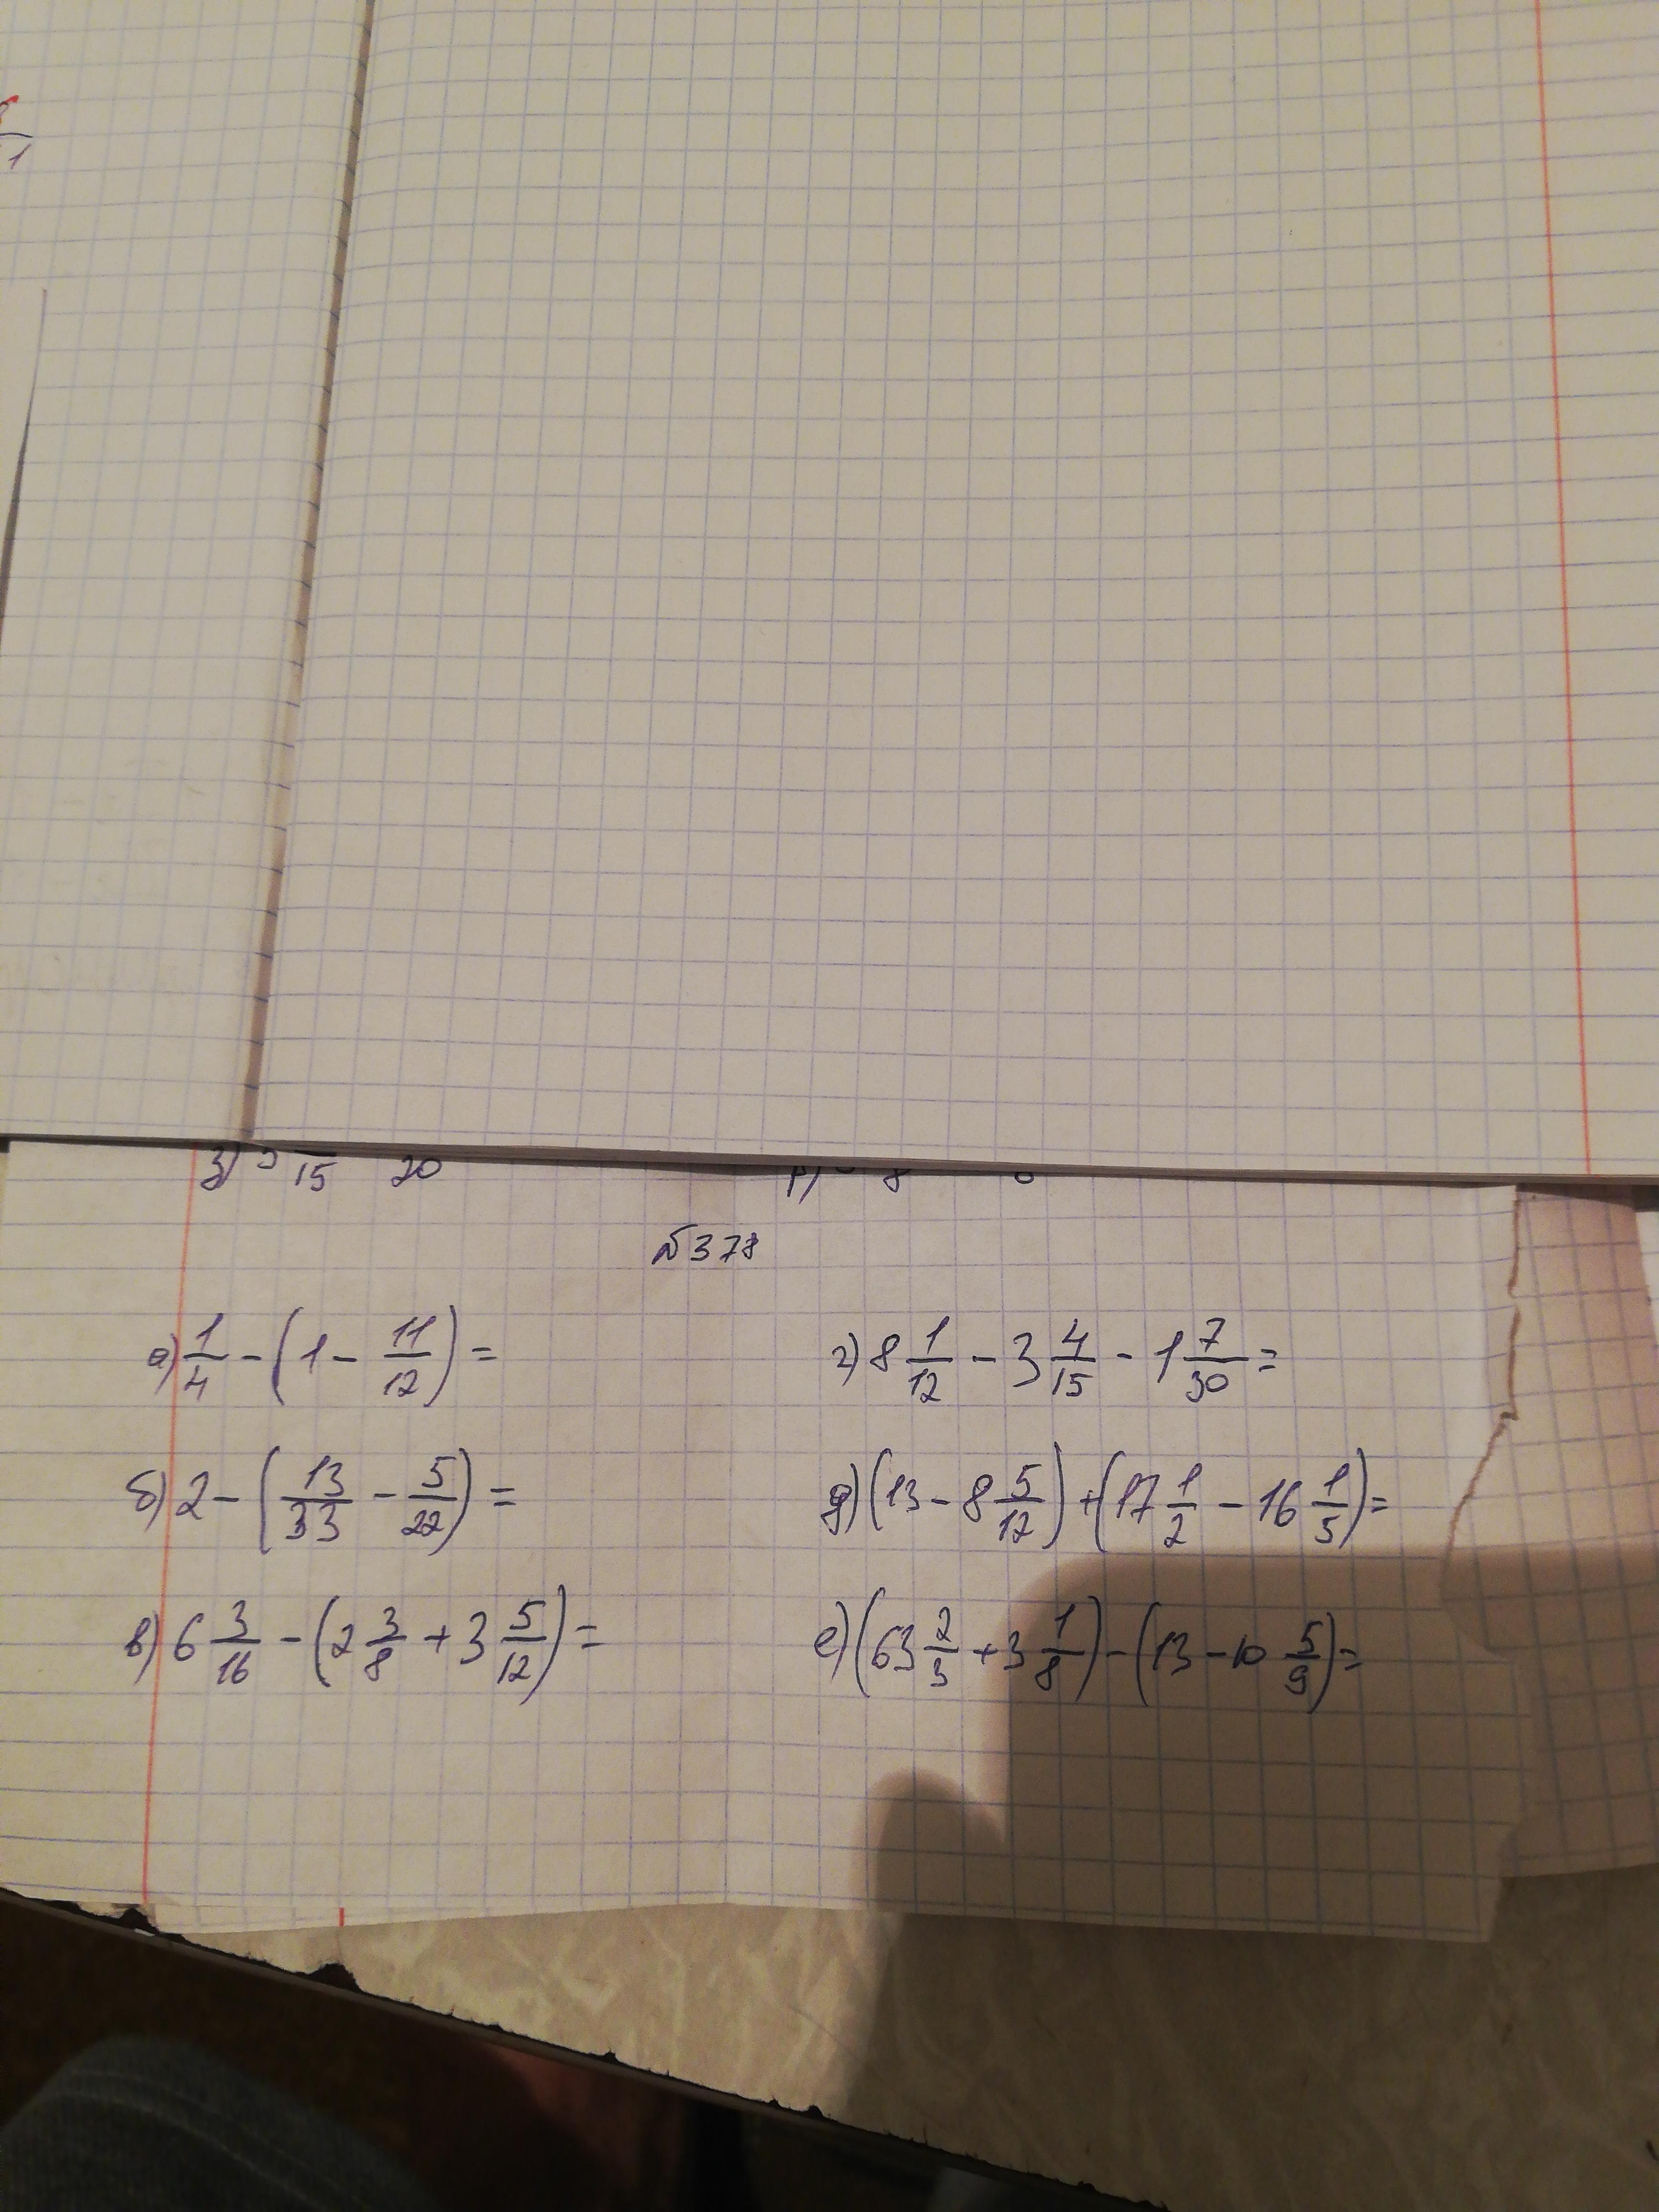 з) 15 20 8
№378
а) 1/4 - (1 - 11/12) = г) 8 1/12 - 3 4/15 - 1 7/30 =
б) 2 - (13/33 - 5/22) = д) (13 - 8 5/12) + (17 1/2 - 16 1/5) =
в) 6 3/16 - (2 3/8 + 3 5/12) = е) (63 2/3 + 3 1/8) - (13 - 10 5/9) =